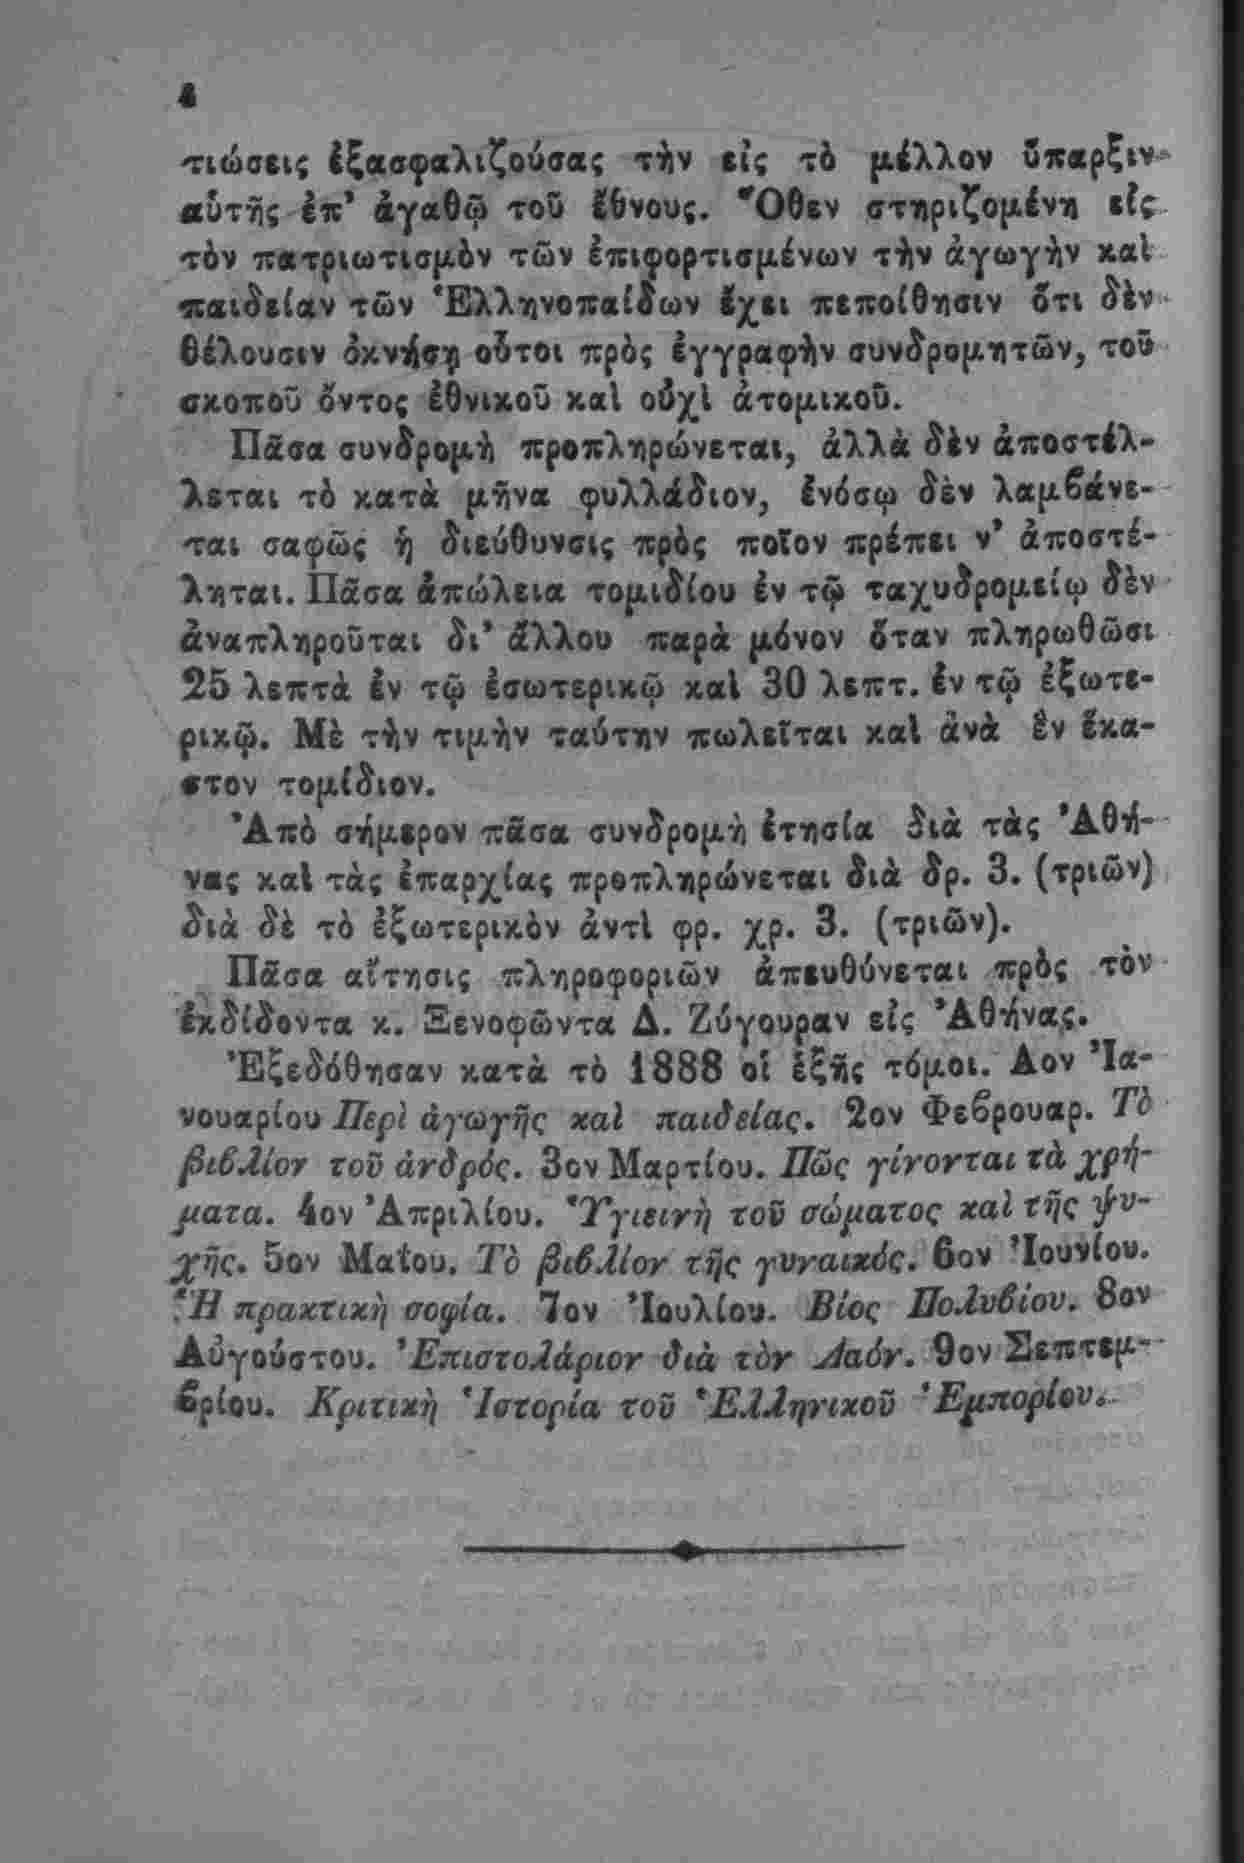 4
τιώσεις ἐξασφαλιζούσας τὴν εἰς τὸ μέλλον ὕπαρξιν
αὐτῆς ἐπ' ἀγαθῷ τοῦ ἔθνους. Ὅθεν στηριζομένη εἰς
τὸν πατριωτισμὸν τῶν ἐπιφορτισμένων τὴν ἀγωγὴν καὶ
παιδείαν τῶν Ἑλληνοπαίδων ἔχει πεποίθησιν ὅτι δὲν
θέλουσιν ὀκνήσῃ οὗτοι πρὸς ἐγγραφὴν συνδρομητῶν, τοῦ
σκοποῦ ὄντος ἐθνικοῦ καὶ οὐχὶ ἀτομικοῦ.
Πᾶσα συνδρομὴ προπληρώνεται, ἀλλὰ δὲν ἀποστέλ-
λεται τὸ κατὰ μῆνα φυλλάδιον, ἐνόσῳ δὲν λαμβάνε-
ται σαφῶς ἡ διεύθυνσις πρὸς ποῖον πρέπει ν' ἀποστέ-
ληται. Πᾶσα ἀπώλεια τομιδίου ἐν τῷ ταχυδρομείῳ δὲν
ἀναπληροῦται δι' ἄλλου παρὰ μόνον ὅταν πληρωθῶσι
25 λεπτὰ ἐν τῷ ἐσωτερικῷ καὶ 30 λεπτ. ἐν τῷ ἐξωτε-
ρικῷ. Μὲ τὴν τιμὴν ταύτην πωλεῖται καὶ ἀνὰ ἓν ἕκα-
στον τομίδιον.
Ἀπὸ σήμερον πᾶσα συνδρομὴ ἐτησία διὰ τὰς Ἀθή-
νας καὶ τὰς ἐπαρχίας προπληρώνεται διὰ δρ. 3. (τριῶν)
διὰ δὲ τὸ ἐξωτερικὸν ἀντὶ φρ. χρ. 3. (τριῶν).
Πᾶσα αἴτησις πληροφοριῶν ἀπευθύνεται πρὸς τὸν
ἐκδίδοντα κ. Ξενοφῶντα Δ. Ζύγουραν εἰς Ἀθήνας.
Ἐξεδόθησαν κατὰ τὸ 1888 οἱ ἑξῆς τόμοι. Αον Ἰα-
νουαρίου Περὶ ἀγωγῆς καὶ παιδείας. 2ον Φεβρουαρ. Τὸ
βιβλίον τοῦ ἀνδρός. 3ον Μαρτίου. Πῶς γίνονται τὰ χρή-
ματα. 4ον Ἀπριλίου. Ὑγιεινὴ τοῦ σώματος καὶ τῆς ψυ-
χῆς. 5ον Μαΐου. Τὸ βιβλίον τῆς γυναικός. 6ον Ἰουνίου.
Ἡ πρακτικὴ σοφία. 7ον Ἰουλίου. Βίος Πολυβίου. 8ον
Αὐγούστου. Ἐπιστολάριον διὰ τὸν Λαόν. 9ον Σεπτεμ-
βρίου. Κριτικὴ Ἱστορία τοῦ Ἑλληνικοῦ Ἐμπορίου.